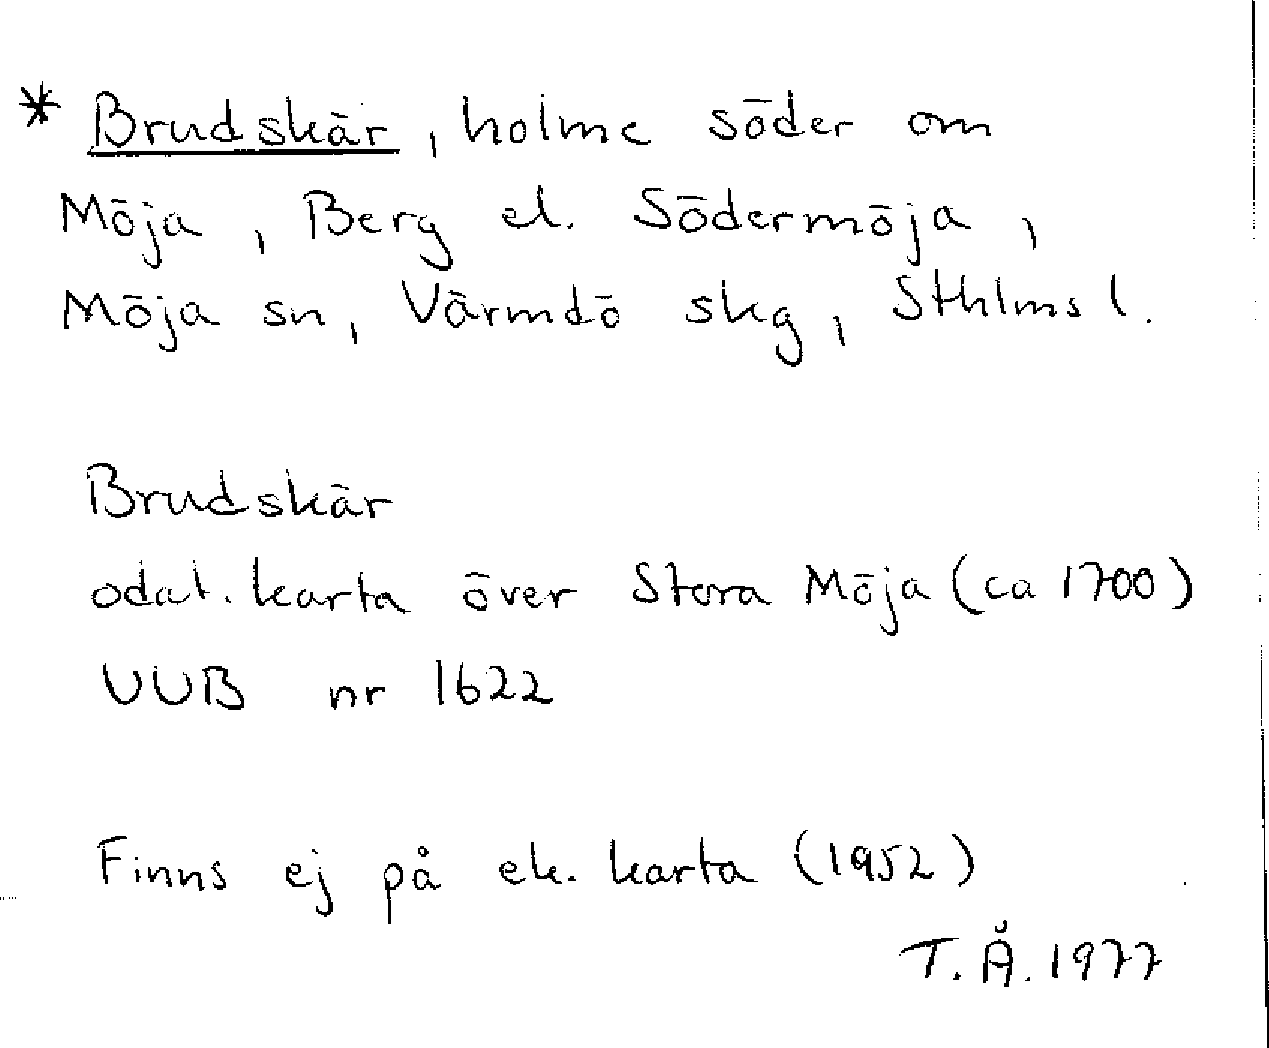 * Brudskär, holme söder om
Möja, Berg el. Södermöja,
Möja sn, Värmdö skg, Sthlms l.
Brudskär
odat. karta över Stora Möja (ca 1700)
UUB nr 1622
Finns ej på ek. karta (1952)
T. Å. 1977